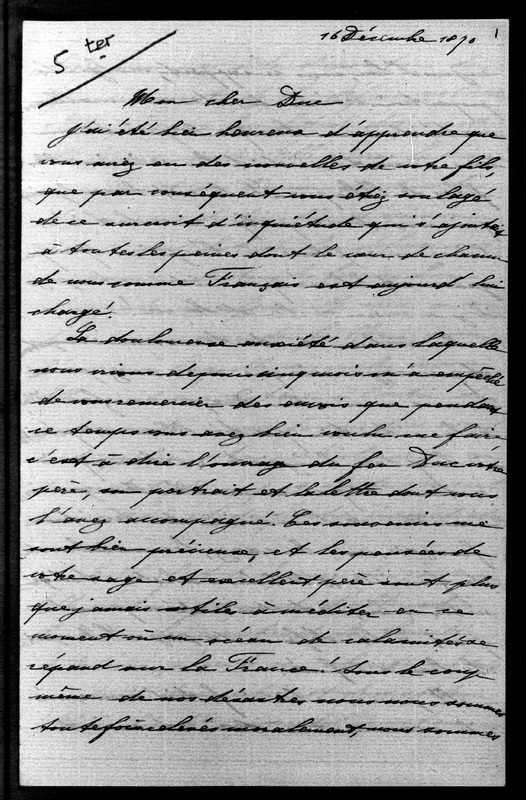 16 Décembre 1870 1
5 ter
Mon cher Duc
J'ai été bien heureux d'apprendre que
vous aviez eu des nouvelles de votre fils,
que par conséquent vous étiez soulagé
de ce surcroit d'inquiétude qui s'ajoutait
à toutes les peines dont le cœur de chacun
de nous comme Français est aujourd'hui
chargé.
La douloureuse anxiété dans laquelle
nous vivons depuis cinq mois m'a empêché
de vous remercier des envois que pendant
ce temps vous avez bien voulu me faire
c'est à dire l'ouvrage du feu Duc votre
père, son portrait et la lettre dont vous
l'avez accompagné. Ces souvenirs me
sont bien précieux, et les pensées de
votre sage et excellent père sont plus
que jamais utiles à méditer en ce
moment où un océan de calamités se
répand sur la France! Sous le coup
même de nos désastres nous nous sommes
toutefois relevés moralement, nous sommes